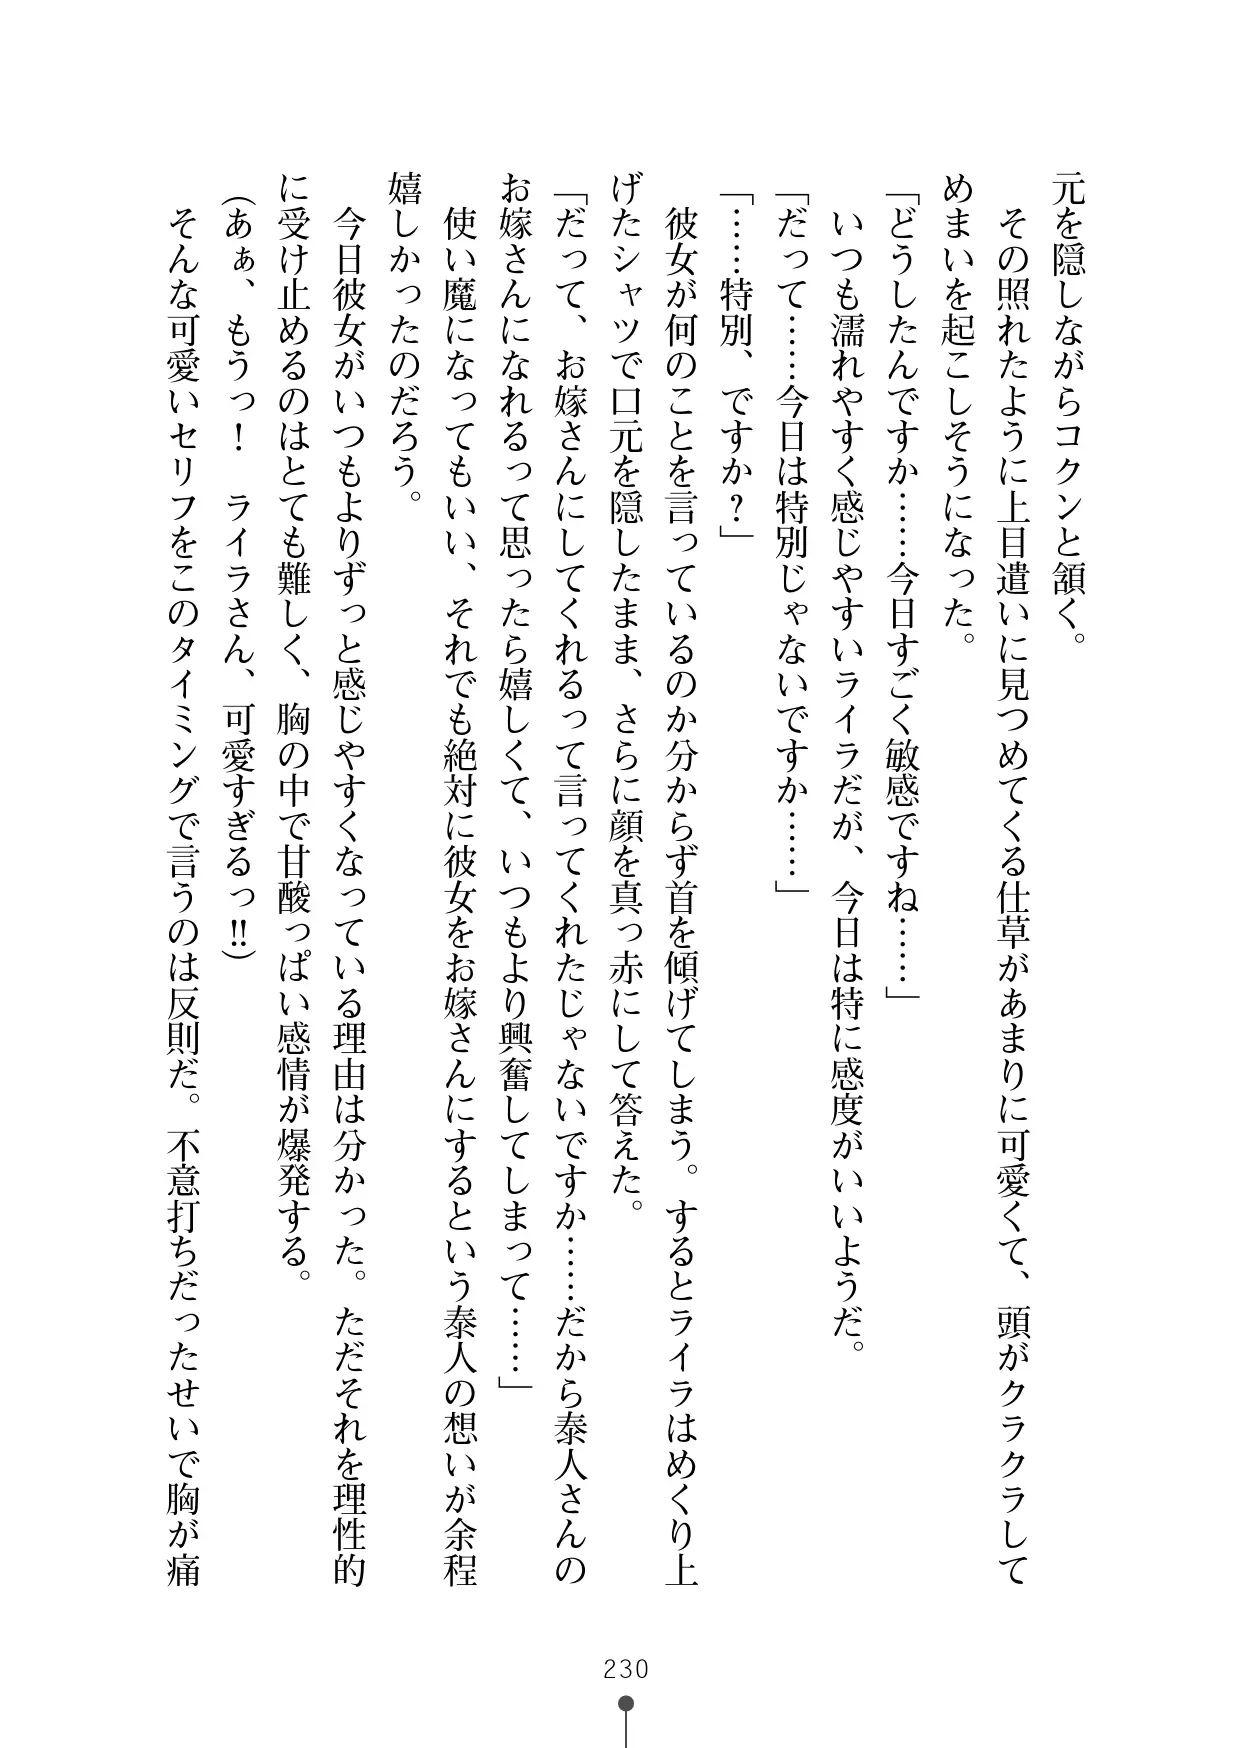 元を隠しながらコクンと頷く。
　その照れたように上目遣いに見つめてくる仕草があまりに可愛くて、頭がクラクラして
めまいを起こしそうになった。
「どうしたんですか……今日すごく敏感ですね……」
　いつも濡れやすく感じやすいライラだが、今日は特に感度がいいようだ。
「だって……今日は特別じゃないですか……」
「……特別、ですか？」
　彼女が何のことを言っているのか分からず首を傾げてしまう。するとライラはめくり上
げたシャツで口元を隠したまま、さらに顔を真っ赤にして答えた。
「だって、お嫁さんにしてくれるって言ってくれたじゃないですか……だから泰人さんの
お嫁さんになれるって思ったら嬉しくて、いつもより興奮してしまって……」
　使い魔になってもいい、それでも絶対に彼女をお嫁さんにするという泰人の想いが余程
嬉しかったのだろう。
　今日彼女がいつもよりずっと感じやすくなっている理由は分かった。ただそれを理性的
に受け止めるのはとても難しく、胸の中で甘酸っぱい感情が爆発する。
（あぁ、もうっ！　ライラさん、可愛すぎるっ‼）
　そんな可愛いセリフをこのタイミングで言うのは反則だ。不意打ちだったせいで胸が痛
230